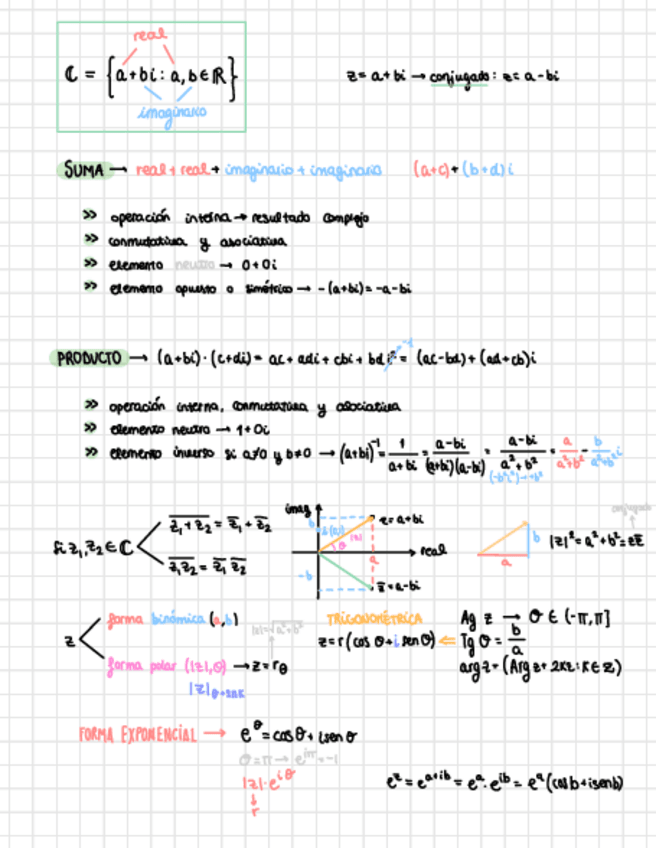 real
ℂ = {a+bi : a, b ∈ ℝ}
imaginario
z = a+bi → conjugado: z = a-bi
SUMA → real + real + imaginario + imaginario (a+c)+(b+d)i
>> operación interna → resultado complejo
>> conmutativa y asociativa
>> elemento neutro → 0+0i
>> elemento opuesto o simétrico → -(a+bi) = -a-bi
PRODUCTO → (a+bi)·(c+di) = ac + adi + cbi + bdi² = (ac-bd)+(ad+cb)i
-1
>> operación interna, conmutativa y asociativa
>> elemento neutro → 1+0i
>> elemento inverso si a≠0 y b≠0 → (a+bi)⁻¹ = 1/(a+bi) = (a-bi)/((a+bi)(a-bi)) = (a-bi)/(a²+b²) = a/(a²+b²) - b/(a²+b²) i
(-b²i²) → +b²
conjugado
si z₁, z₂ ∈ ℂ
z̅₁̅+̅z̅₂̅ = z̅₁ + z̅₂
z̅₁̅z̅₂̅ = z̅₁ z̅₂
imag
b
z = a+bi
|z|
θ
a
real
-b
z̅ = a-bi
b
a
|z|² = a²+b² = zz̅
z
forma binómica (a,b)
|z| = √a²+b²
forma polar (|z|, θ) → z = r_θ
TRIGONOMÉTRICA
z = r(cos θ + i sen θ) ⇐
Ag z → θ ∈ (-π, π]
Tg θ = b/a
arg z = (Arg z + 2kπ : k ∈ ℤ)
FORMA EXPONENCIAL → e^θ = cos θ + i sen θ
θ = π → e^iπ = -1
|z|·e^iθ
r
e^z = e^a+ib = e^a · e^ib = e^a (cos b + i sen b)